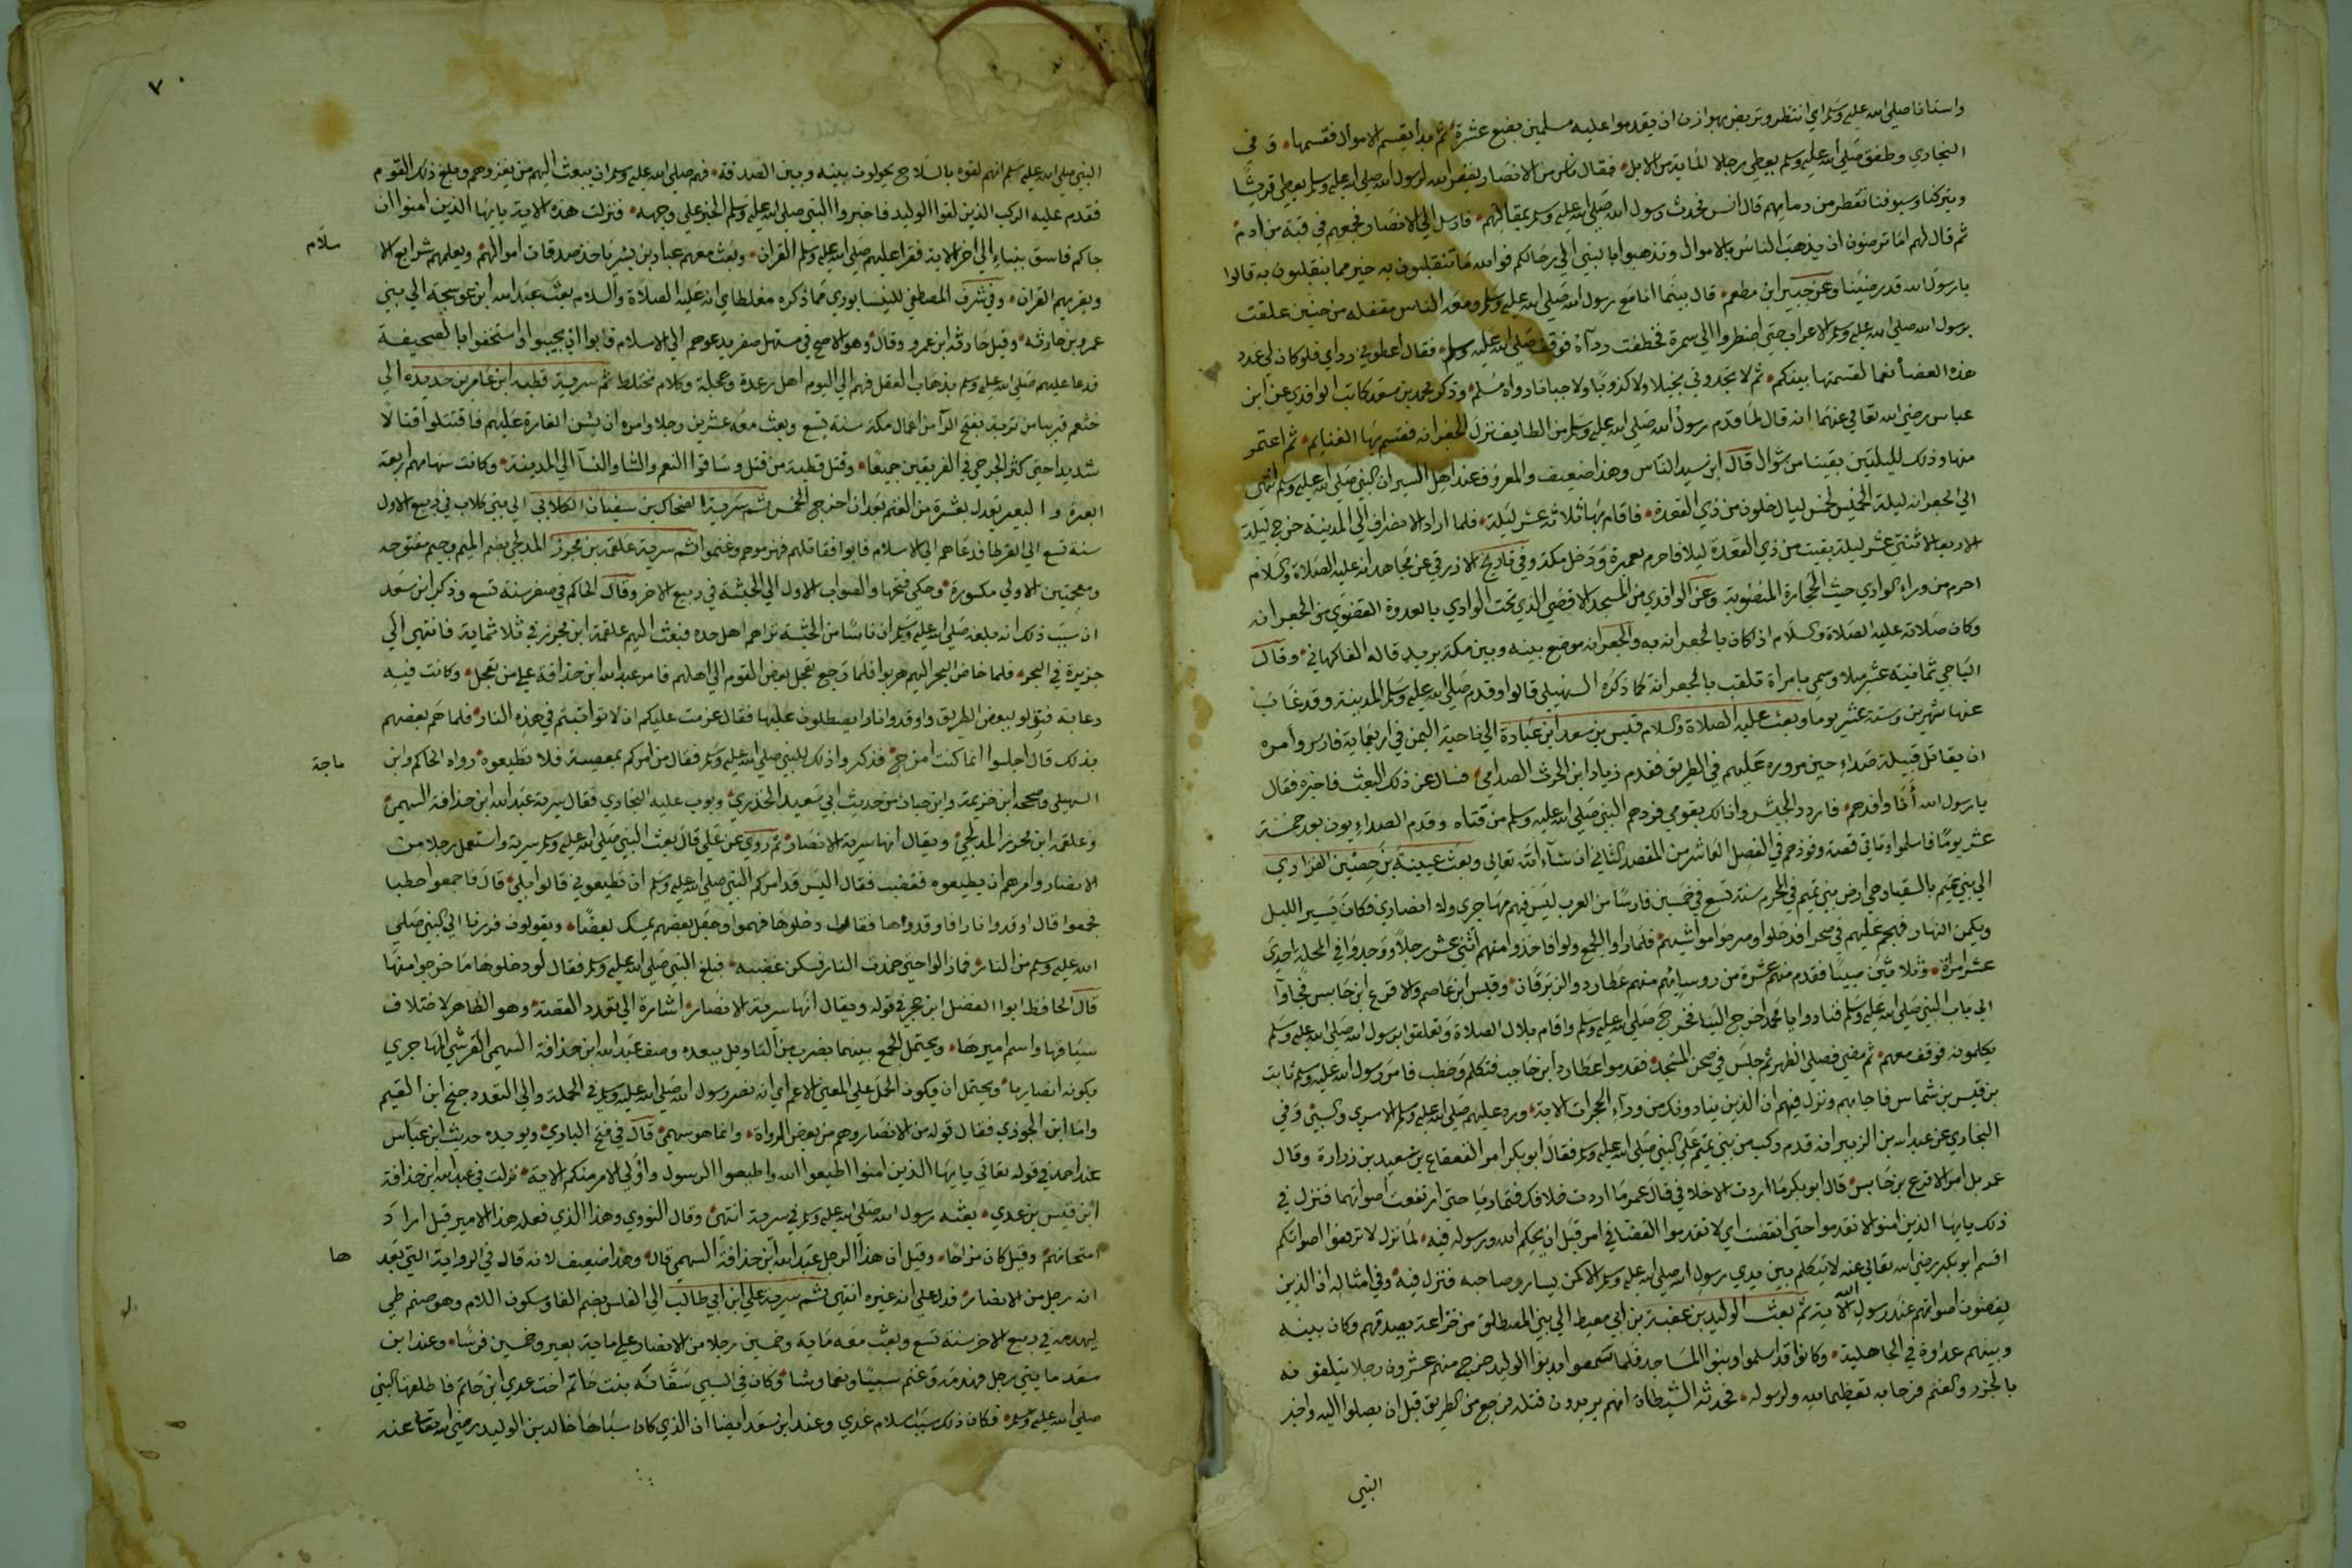 واستانا صلى الله عليه وسلم اي انتظر وتربص بهوازن ان يقدموا عليه مسلمين بضع عشرة ثم بدا يقسم الاموال فقسمها وفي
البخاري وطفق صلى الله عليه وسلم يعطي رجالا المائة من الابل فقال ناس من الانصار يغفر الله لرسول الله صلى الله عليه وسلم يعطي قريشا
ويتركنا وسيوفنا تقطر من دمائهم قال انس فحدث رسول الله صلى الله عليه وسلم بمقالتهم فارسل الى الانصار فجمعهم في قبة من ادم
ثم قال لهم اما ترضون ان يذهب الناس بالاموال وتذهبوا بالنبي الى رحالكم فوالله ما تنقلبون به خير مما ينقلبون به قالوا
يا رسول الله قد رضينا وعن جبير ابن مطعم قال بينما انا مع رسول الله صلى الله عليه وسلم ومعه الناس مقفله من حنين علقت
برسول الله صلى الله عليه وسلم الاعراب حتى اضطروا الى سمرة فخطفت رداه فوقف صلى الله عليه وسلم فقال اعطوني رداي فلو كان لي عدد
هذه العضاه نعما لقسمتها بينكم ثم لا تجدوني بخيلا ولا كذوبا ولا جبانا رواه مسلم وذكر محمد بن سعد كاتب الواقدي عن ابن
عباس رضي الله تعالى عنهما انه قال لما قدم رسول الله صلى الله عليه وسلم من الطايف نزل الجعرانه فقسم بها الغنايم ثم اعتمر
منها وذلك لليلتين بقيتا من شوال قال ابن سيد الناس وهذا ضعيف والمعروف عند اهل السير ان النبي صلى الله عليه وسلم انتهى
الى الجعرانه ليلة الخميس لخمس ليال خلون من ذي القعدة فاقام بها ثلاثة عشر ليلة فلما اراد الانصراف الى المدينة خرج ليلة
الاربعا لاثنتي عشر ليلة بقيت من ذي القعدة ليلا فاحرم بعمرة ودخل مكة وفي تاريخ الازرقي عن مجاهد انه عليه الصلاة والسلام
احرم من وراء الوادي حيث الحجارة المنصوبة وعن الواقدي من المسجد الاقصى الذي تحت الوادي بالعدوة القصوى من الجعرانه
وكان صلاته عليه الصلاة والسلام اذا كان بالجعرانه به والجعرانه موضع بينه وبين مكة بريد قاله الفاكهاني وقال
الباجي ثمانية عشر ميلا وسمي بامراة تلقب بالجعرانة كما ذكره السهيلي قالوا وقدم صلى الله عليه وسلم المدينة وقد غاب
عنها شهرين وستة عشر يوما وبعث عليه الصلاة والسلام قيس بن سعد ابن عبادة الى ناحية اليمن في اربعماية فارس وامره
ان يقاتل قبيلة صداء حين مروره عليهم في الطريق فقدم زياد ابن الحرث الصدايي فسال عن ذلك البعث فاخبره فقال
يا رسول الله انا وافدهم فاردد الجيش وانا لك بقومي فردهم النبي صلى الله عليه وسلم من قناه وقدم الصداءيون بعد خمسة
عشر يوما فاسلموا وتاتي قصة وفودهم في الفصل العاشر من المقصد الثاني ان شاء الله تعالى وبعث عيينة بن حصين الفزاري
الى بني تميم بالسقيا وهي ارض بني تميم في المحرم سنة تسع في خمسين فارسا من العرب ليس فيهم مهاجري ولا انصاري فكان يسير الليل
ويكمن النهار فهجم عليهم في صحرا فدخلوا وسرحوا مواشيهم فلما راوا الجمع ولوا فاخذوا منهم اثني عشر رجلا ووجدوا في المحلة احدى
عشر امراة وثلاثين صبيا فقدم منهم عشرة من روسائهم منهم عطارد والزبرقان وقيس ابن عاصم والاقرع ابن حابس فجاوا
الى باب النبي صلى الله عليه وسلم فنادوا يا محمد اخرج الينا فخرج صلى الله عليه وسلم واقام بلال الصلاة وتعلقوا برسول الله صلى الله عليه وسلم
يكلمونه فوقف معهم ثم مضى فصلى الظهر ثم جلس في صحن المسجد فقدموا عطارد ابن حاجب فتكلم وخطب فامر رسول الله عليه وسلم ثابت
بن قيس بن شماس فاجابهم ونزل فيهم ان الذين ينادونك من وراء الحجرات الاية ورد عليهم صلى الله عليه وسلم الاسرى والسبي وفي
البخاري عن عبد الله بن الزبير انه قدم ركب من بني تميم على النبي صلى الله عليه وسلم فقال ابو بكر امر القعقاع بن سعيد بن زرارة وقال
عمر بل امر الاقرع بن حابس قال ابو بكر ما اردت الا خلافي قال عمر ما اردت خلافك فتماريا حتى ارتفعت اصواتهما فنزل في
ذلك يايها الذين امنوا لا تقدموا حتى انقضت اي لا تقدموا القضا في امر قبل ان يحكم الله ورسوله فيه لما نزل لا ترفعوا اصواتكم
اقسم ابو بكر رضي الله تعالى عنه لا يتكلم بين يدي رسول الله صلى الله عليه وسلم الا كمن يسار صاحبه فنزل فيه وفي امثاله ان الذين
يغضون اصواتهم عند رسول الله الاية ثم بعث الوليد بن عقبة بن ابي معيط الى بني المصطلق من خزاعة يصدقهم وكان بينه
وبينهم عداوة في الجاهلية وكانوا قد اسلموا وبنوا المساجد فلما سمعوا بدنو الوليد خرج منهم عشرون رجلا يتلقونه
بالجزر والغنم فرحا به تعظيما لله ولرسوله فحدثه الشيطان انهم يريدون قتله فرجع من الطريق قبل ان يصلوا اليه واخبر
النبي
٧٠
النبي صلى الله عليه وسلم انهم لقوه بالسلاح يحولون بينه وبين الصدقة فهم صلى الله عليه وسلم ان يبعث اليهم من يغزوهم وبلغ ذلك القوم
فقدم عليه الركب الذين لقوا الوليد فاخبروا النبي صلى الله عليه وسلم الخبر على وجهه فنزلت هذه الاية يايها الذين امنوا ان
جاكم فاسق بنباء الى اخر الاية فقرا عليهم صلى الله عليه وسلم القران وبعث معهم عباد بن بشر ياخذ صدقات اموالهم ويعلمهم شرايع الا
سلام
ويقريهم القران وفي شرف المصطفى للنيسابوري مما ذكره مغلطاي انه عليه الصلاة والسلام بعث عبد الله ابن عوسجة الى بني
عمرو بن حارثه وقيل حارثة ابن عمرو وقال وهو الاصح في مستهل صفر يدعوهم الى الاسلام فابوا ان يجيبوا واستخفوا بالصحيفة
فدعا عليهم صلى الله عليه وسلم بذهاب العقل فهم الى اليوم اهل رعدة وعجلة وكلام مختلط ثم سرية قطبه ابن عامر بن حديده الى
خثعم قريبا من تربة بفتح الرآ من اعمال مكة سنة تسع وبعث معه عشرين رجلا وامره ان يشن الغارة عليهم فاقتتلوا قتالا
شديدا حتى كثر الجرحى في الفريقين جميعا وقتل قطبة من قتل وساقوا النعم والشا والنسآ الى المدينة وكانت سهامهم اربعة
ابعرة والبعير تعدل بعشرة من الغنم بعد ان اخرج الخمس ثم سرية الضحاك بن سفيان الكلابي الى بني كلاب في ربيع الاول
سنة تسع الى القرطا فدعاهم الى الاسلام فابوا فقاتلهم فهزموهم وغنموا ثم سرية علقمه بن مجزز المدلجي بضم الميم وجيم مفتوحه
ومعجمتين الاولى مكسورة وحكي فتحها والصواب الاول الى الحبشة في ربيع الاخر وقال الحاكم في صفر سنة تسع وذكر ابن سعد
ان سبب ذلك انه بلغه صلى الله عليه وسلم ان ناسا من الحبشة تراهم اهل جده فبعث اليهم علقمة ابن مجزز في ثلاثماية فانتهى الى
جزيرة في البحر فلما خاض البحر اليهم هربوا فلما رجع تعجل بعض القوم الى اهلهم فامر عبد الله ابن حذافة على من تعجل وكانت فيه
دعابة فنزلو ببعض الطريق واوقدوا نارا يصطلون عليها فقال عزمت عليكم ان لا تواثبتم في هذه النار فلما هم بعضهم
بذلك قال اجلسوا انما كنت امزح فذكروا ذلك للنبي صلى الله عليه وسلم فقال من امركم بمعصية فلا تطيعوه رواه الحاكم وابن
ماجة
السهيلي وصححه ابن خزيمة وابن حبان من حديث ابي سعيد الخدري وبوب عليه البخاري فقال سرية عبد الله ابن حذافة السهمي
وعلقمه ابن محرز المدلجي ويقال انها سرية الانصار ثم روى عن علي قال بعث النبي صلى الله عليه وسلم سرية واستعمل رجلا من
الانصار وامرهم ان يطيعوه فغضب فقال اليس قد امركم النبي صلى الله عليه وسلم ان تطيعوني قالوا بلى قال فاجمعوا حطبا
فجمعوا قال اوقدوا نارا فاوقدوها فقال ادخلوها فهموا وجعل بعضهم يمسك بعضا ويقولون فررنا الى النبي صلى
الله عليه وسلم من النار فمازالوا حتى خمدت النار فسكن غضبه فبلغ النبي صلى الله عليه وسلم فقال لو دخلوها ما خرجوا منها
قال الحافظ ابوا الفضل ابن حجر في قوله ويقال انها سرية الانصار اشارة الى تعدد القصة وهو الظاهر لاختلاف
سياقها واسم اميرها ويحتمل الجمع بينهما بضرب من التاويل ويبعده وصف عبد الله ابن حذافة السهمي القرشي المهاجري
بكونه انصاريا ويحتمل ان يكون الحمل على المعنى الاعم اي انه نصر رسول الله صلى الله عليه وسلم في الجملة والى التعدد جنح ابن القيم
واما ابن الجوزي فقال قوله من الانصار وهم من بعض الرواة وانما هو سهمي قال في فتح الباري ويويده حديث ابن عباس
عند احمد في قوله تعالى يايها الذين امنوا اطيعوا الله واطيعوا الرسول واولي الامر منكم الاية نزلت في عبد الله ابن حذافة
ابن قيس بن عدي بعثه رسول الله صلى الله عليه وسلم في سرية انتهى وقال النووي وهذا الذي فعله هذا الامير قيل اراد
امتحانهم وقيل كان مزاحا وقيل ان هذا الرجل عبد الله ابن حذافة السهمي قال وهذا ضعيف لانه قال في الرواية التي بعد
ها
انه رجل من الانصار فدل على انه غيره انتهى ثم سرية علي ابن ابي طالب الى الفلس بضم الفا وسكون اللام وهو صنم طي
ليهدمه في ربيع الاخر سنة تسع وبعث معه ماية وخمسين رجلا من الانصار على ماية بعير وخمسين فرسا وعند ابن
سعد مايتي رجل فهدمه وغنم سبيا ونعما وشا وكان في السبي سفانه بنت حاتم اخت عدي ابن حاتم فاطلقها النبي
صلى الله عليه وسلم فكان ذلك سبب اسلام عدي وعند ابن سعد ايضا ان الذي كان سباها خالد بن الوليد رضي الله تعا عنه